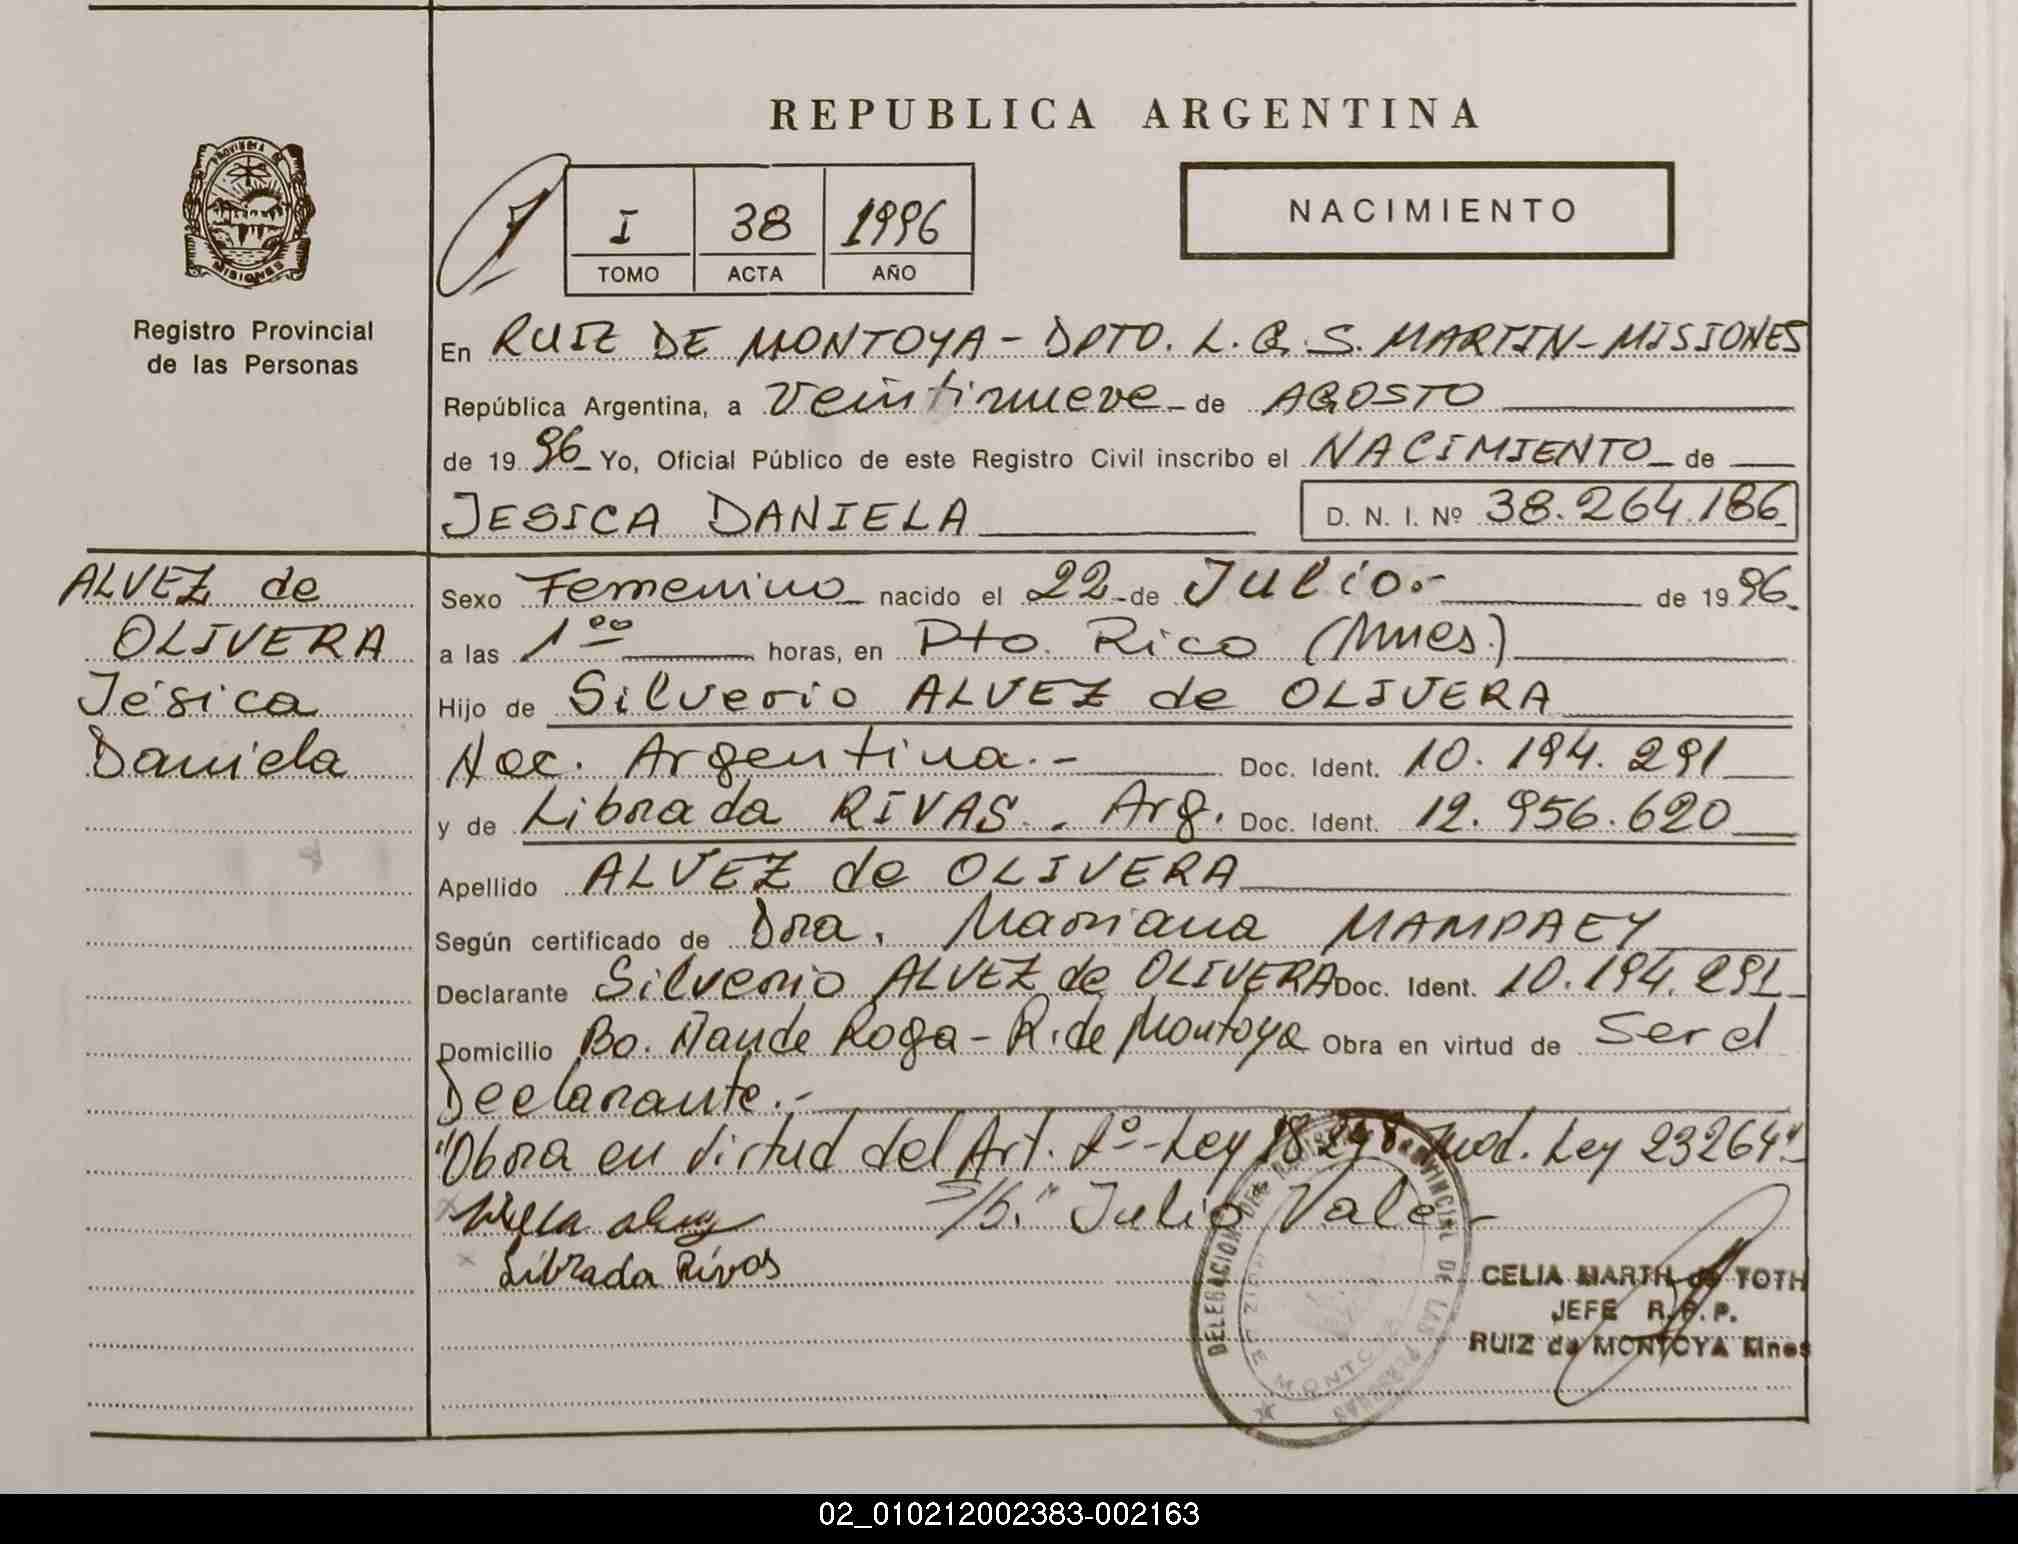 REPUBLICA ARGENTINA
PROVINCIA DE
MISIONES
Registro Provincial
de las Personas
1
I 38 1996
TOMO ACTA AÑO
NACIMIENTO
En RUIZ DE MONTOYA - DPTO. L. G. S. MARTIN - MISIONES
República Argentina, a Veintinueve de AGOSTO
de 1996 Yo, Oficial Público de este Registro Civil inscribo el NACIMIENTO de
JESICA DANIELA D. N. I. Nº 38.264.186
ALVEZ de
OLIVERA
Jésica
Daniela
Sexo Femenino nacido el 22 de Julio.- de 1996
a las 1 00 horas, en Pto. Rico (Mnes.)
Hijo de Silverio ALVEZ de OLIVERA
Nac. Argentina.- Doc. Ident. 10.194.291
y de Librada RIVAS. Arg. Doc. Ident. 12.956.620
Apellido ALVEZ de OLIVERA
Según certificado de Dra. Mariana MAMPAEY
Declarante Silverio ALVEZ de OLIVERA Doc. Ident. 10.194.291
Domicilio Bo. Ñande Roga - R. de Montoya Obra en virtud de Ser el
Declarante.-
"Obra en virtud del Art. 2º - Ley 18248 mod. Ley 23264"
S/b. "Julio Vale-
Librada Rivas
DELEGACION DEL REGISTRO PROVINCIAL DE LAS PERSONAS
RUIZ DE MONTOYA
CELIA MARTH de TOTH
JEFE R.P.P.
RUIZ de MONTOYA Mnes
02_010212002383-002163